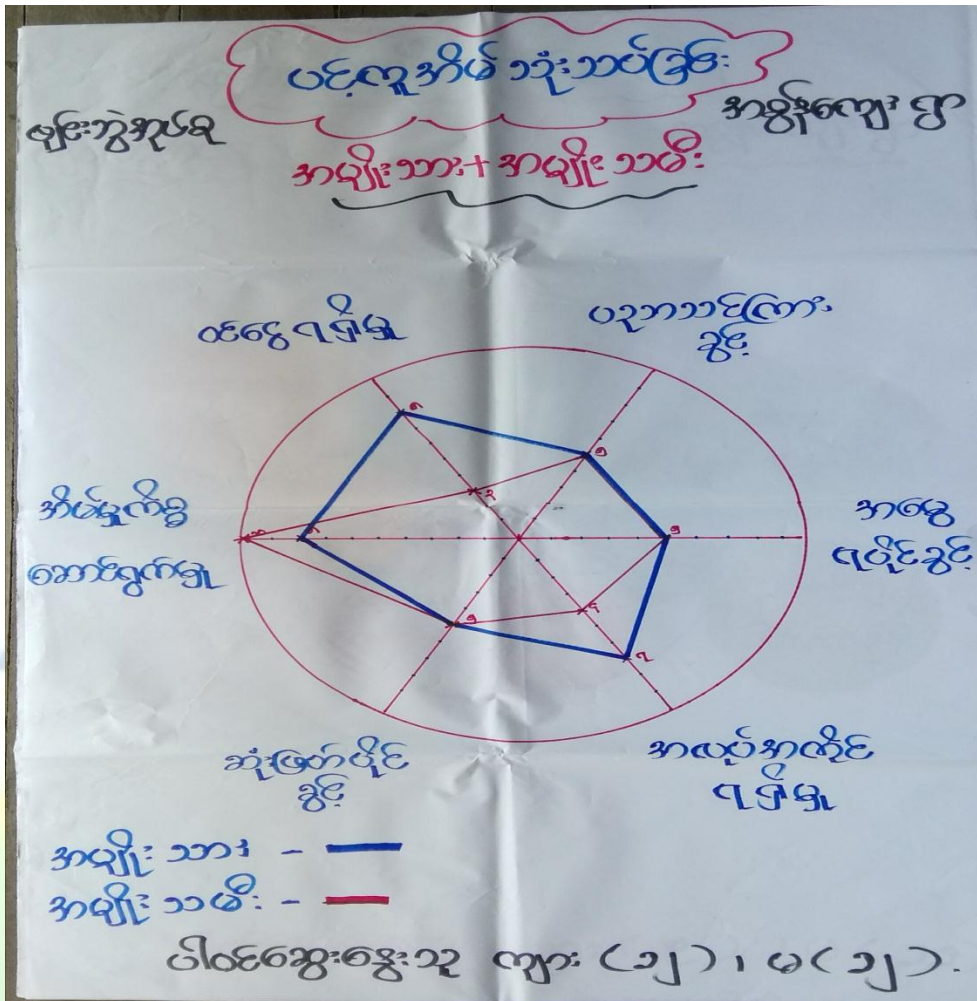 ပင့်ကူအိမ် သုံးသပ်ခြင်း
မျဉ်းဘွဲအုပ်စု
အစွန်ကျေး ရွာ
အမျိုးသား + အမျိုးသမီး
ဝင်ငွေ ရရှိမှု
ပညာသင်ကြား
ခွင့်
အိမ်မှုကိစ္စ
ဆောင်ရွက်မှု
အမွေ
ရပိုင်ခွင့်
ဆုံးဖြတ်ပိုင်
ခွင့်
အလုပ်အကိုင်
ရရှိမှု
အမျိုးသား -
အမျိုးသမီး -
ပါဝင်ဆွေးနွေးသူ ကျား (၁၂)၊ မ (၁၂).